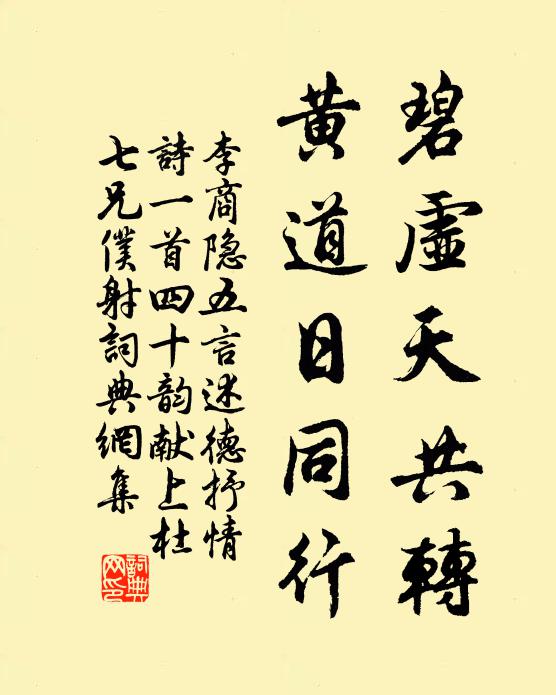 碧虛天共轉
黃道日同行
李商隐五言述德抒情
詩一首四十韵献上杜
七兄僕射詞典網集
詞典网印